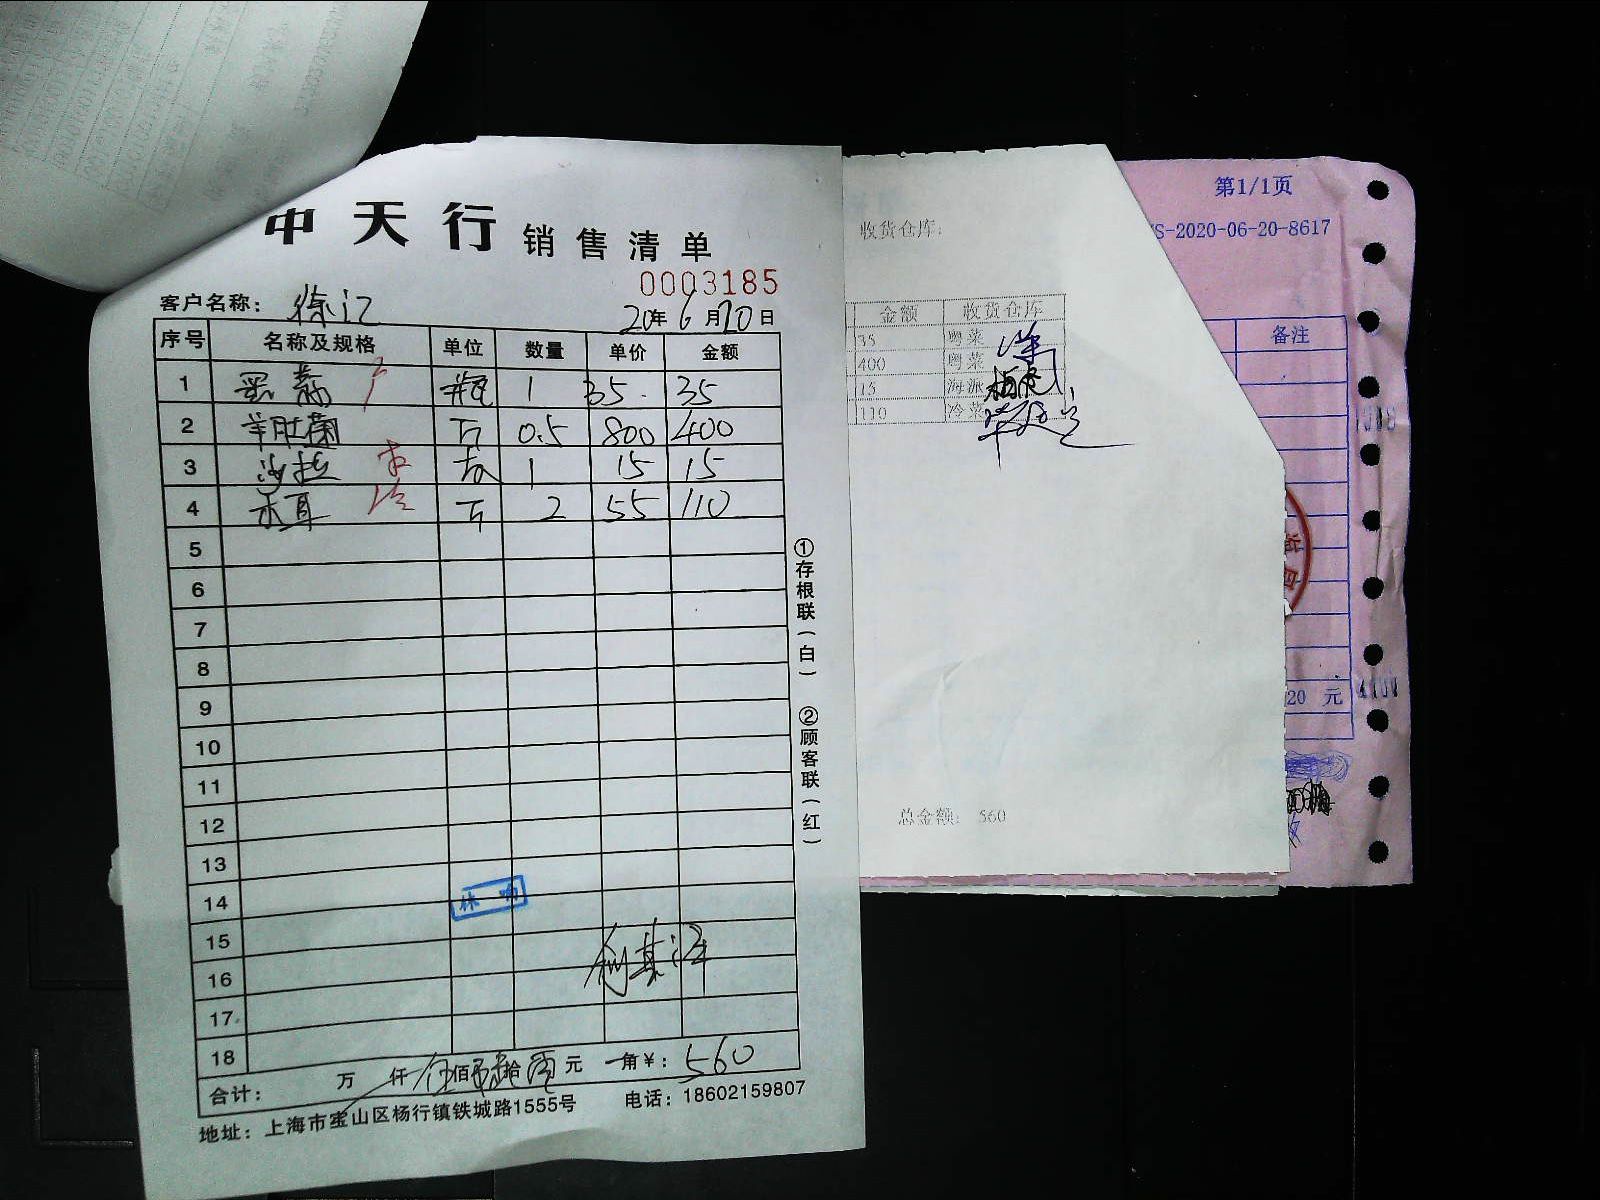 中天行 销售清单
0003185
客户名称: 徐汇
20年6月20日
序号 名称及规格 单位 数量 单价 金额
1 瓶 1 35. 35
2 羊肚菌 斤 0.5 800 400
3 沙拉 1 15 15
4 木耳 斤 2 55 110
5
6
7
8
9
10
11
12
13
14
15
16
17
18
合计: 万 仟 伍佰陆拾零元 角¥: 560
地址: 上海市宝山区杨行镇铁城路1555号 电话: 18602159807
①存根联(白) ②顾客联(红)
收货仓库:
金额 收货仓库
35 粤菜
400 粤菜
15 海派
110 冷菜
总金额: 560
第1/1页
S-2020-06-20-8617
备注
20 元